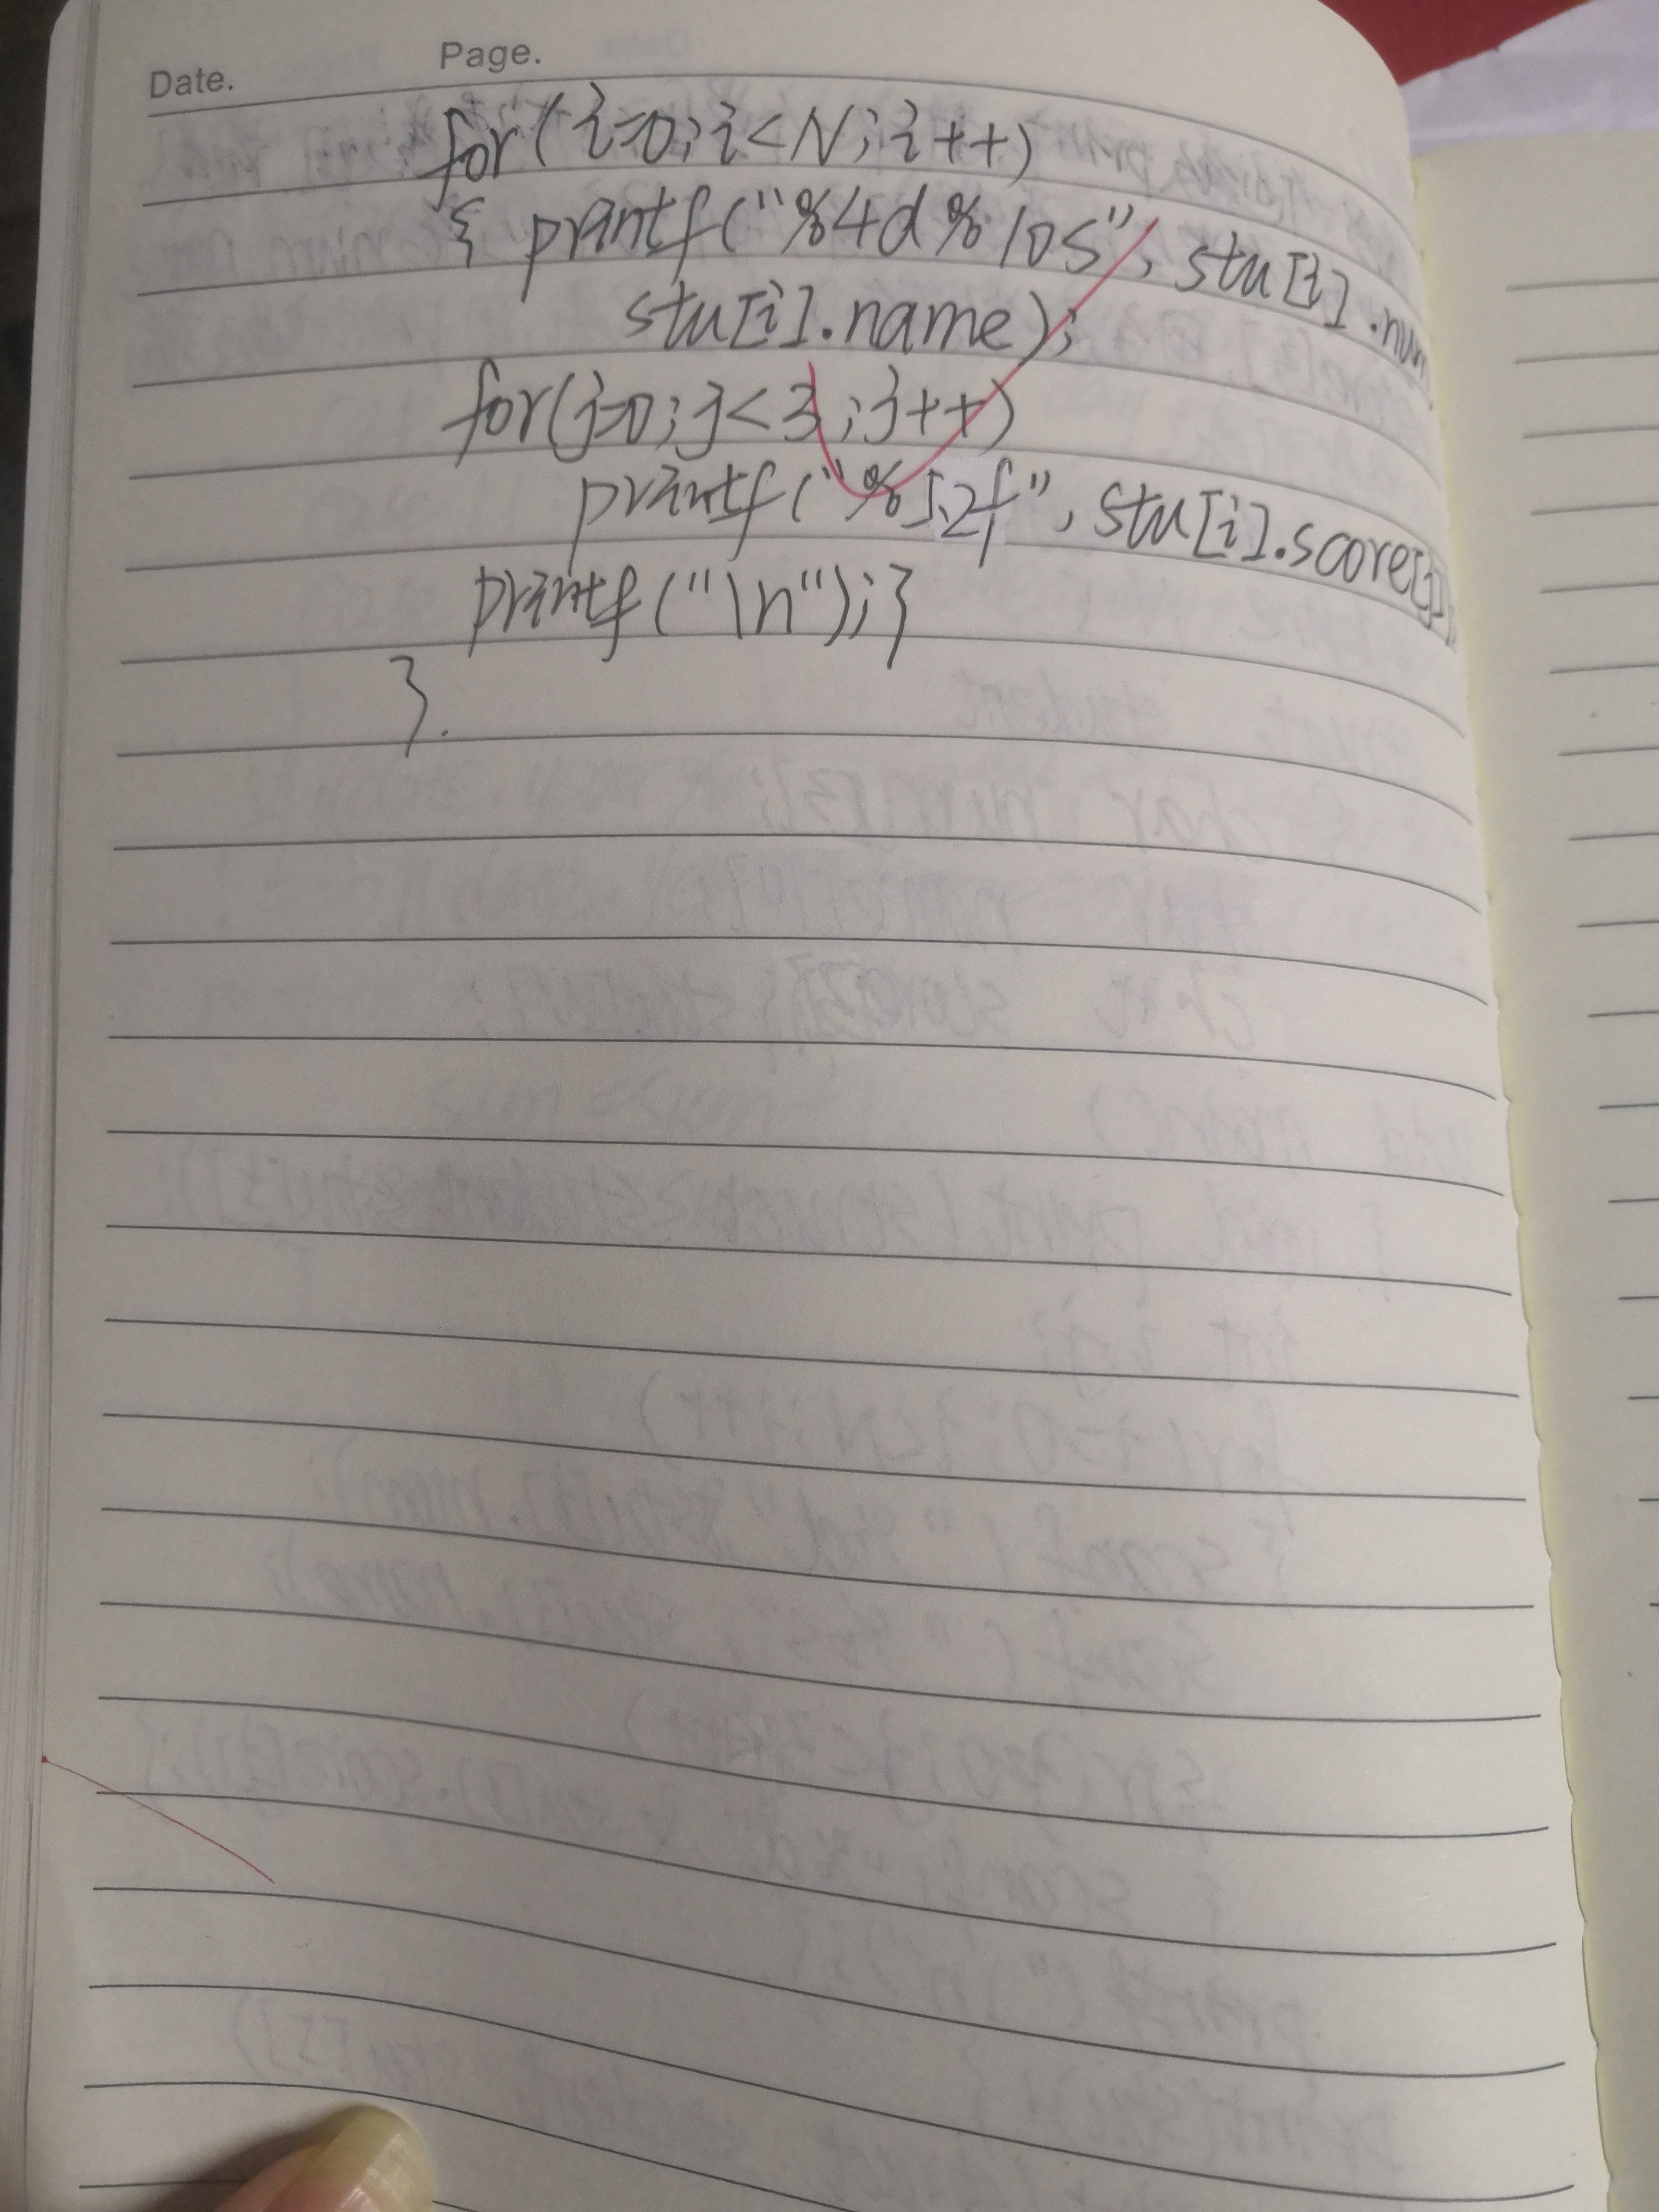 Date.
Page.
for(i=0;i<N;i++)
{ printf("%4d%10s", stu[i].num
stu[i].name);
for(j=0;j<3;j++)
printf("%5.2f", stu[i].score[j]);
printf("\n");}
}.